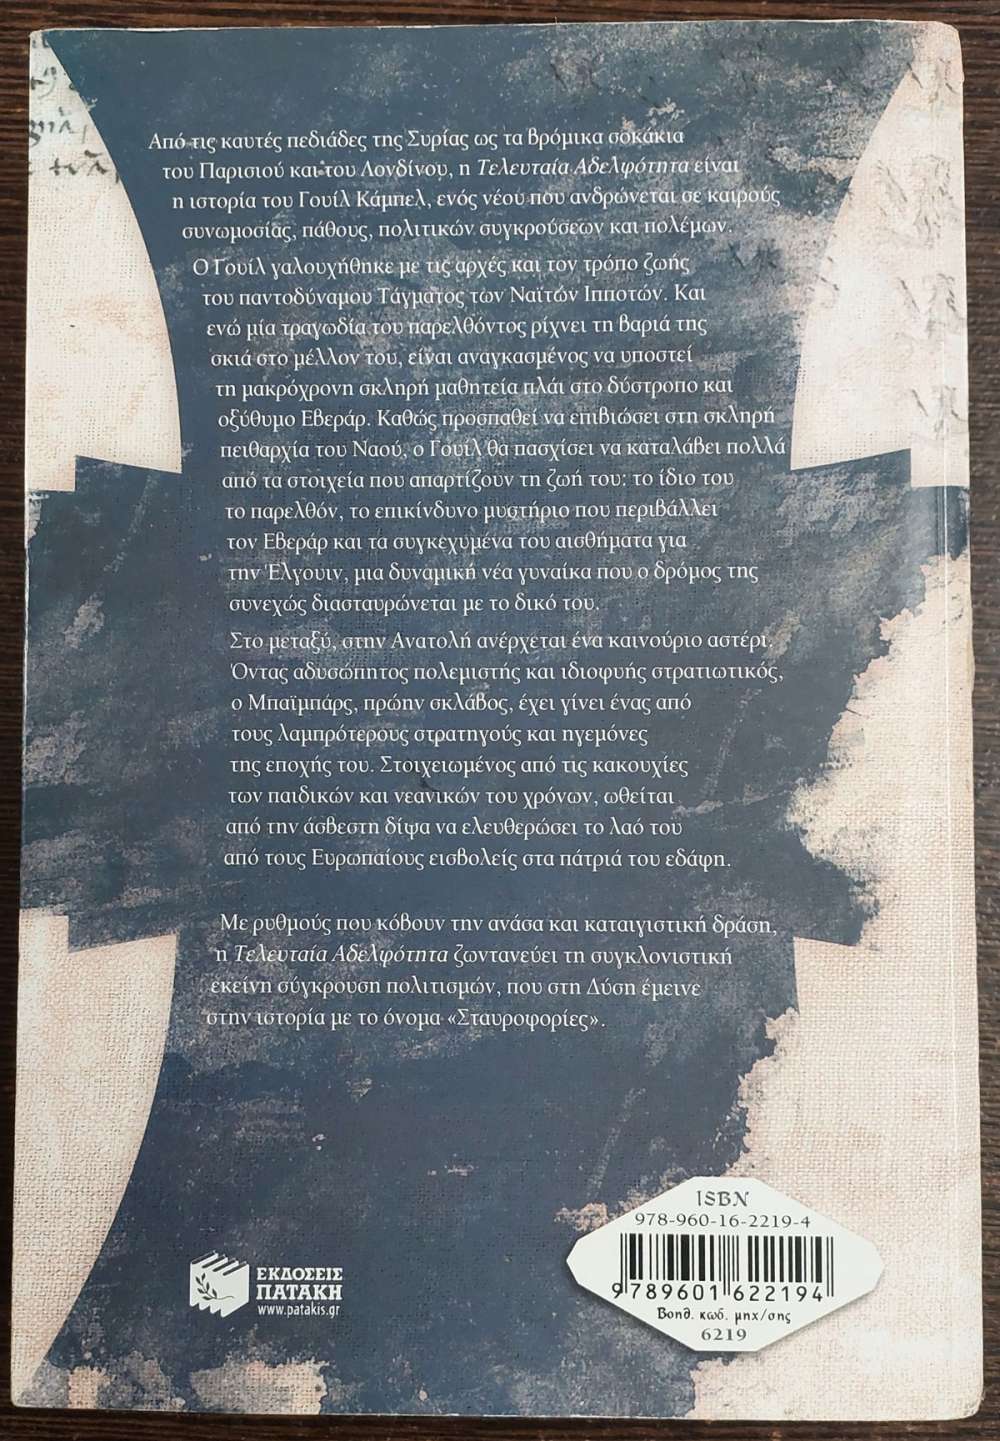 Από τις καυτές πεδιάδες της Συρίας ως τα βρόμικα σοκάκια
του Παρισιού και του Λονδίνου, η Τελευταία Αδελφότητα είναι
η ιστορία του Γουίλ Κάμπελ, ενός νέου που ανδρώνεται σε καιρούς
συνωμοσίας, πάθους, πολιτικών συγκρούσεων και πολέμων.
Ο Γουίλ γαλουχήθηκε με τις αρχές και τον τρόπο ζωής
του παντοδύναμου Τάγματος των Ναϊτών Ιπποτών. Και
ενώ μία τραγωδία του παρελθόντος ρίχνει τη βαριά της
σκιά στο μέλλον του, είναι αναγκασμένος να υποστεί
τη μακρόχρονη σκληρή μαθητεία πλάι στο δύστροπο και
οξύθυμο Εβεράρ. Καθώς προσπαθεί να επιβιώσει στη σκληρή
πειθαρχία του Ναού, ο Γουίλ θα πασχίσει να καταλάβει πολλά
από τα στοιχεία που απαρτίζουν τη ζωή του: το ίδιο του
το παρελθόν, το επικίνδυνο μυστήριο που περιβάλλει
τον Εβεράρ και τα συγκεχυμένα του αισθήματα για
την Έλγουιν, μια δυναμική νέα γυναίκα που ο δρόμος της
συνεχώς διασταυρώνεται με το δικό του.
Στο μεταξύ, στην Ανατολή ανέρχεται ένα καινούριο αστέρι.
Όντας αδυσώπητος πολεμιστής και ιδιοφυής στρατιωτικός,
ο Μπαϊμπάρς, πρώην σκλάβος, έχει γίνει ένας από
τους λαμπρότερους στρατηγούς και ηγεμόνες
της εποχής του. Στοιχειωμένος από τις κακουχίες
των παιδικών και νεανικών του χρόνων, ωθείται
από την άσβεστη δίψα να ελευθερώσει το λαό του
από τους Ευρωπαίους εισβολείς στα πάτριά του εδάφη.
Με ρυθμούς που κόβουν την ανάσα και καταιγιστική δράση,
η Τελευταία Αδελφότητα ζωντανεύει τη συγκλονιστική
εκείνη σύγκρουση πολιτισμών, που στη Δύση έμεινε
στην ιστορία με το όνομα «Σταυροφορίες».
ISBN
978-960-16-2219-4
9 789601 622194
Βοηθ. κωδ. μηχ/σης
6219
ΕΚΔΟΣΕΙΣ
ΠΑΤΑΚΗ
www.patakis.gr